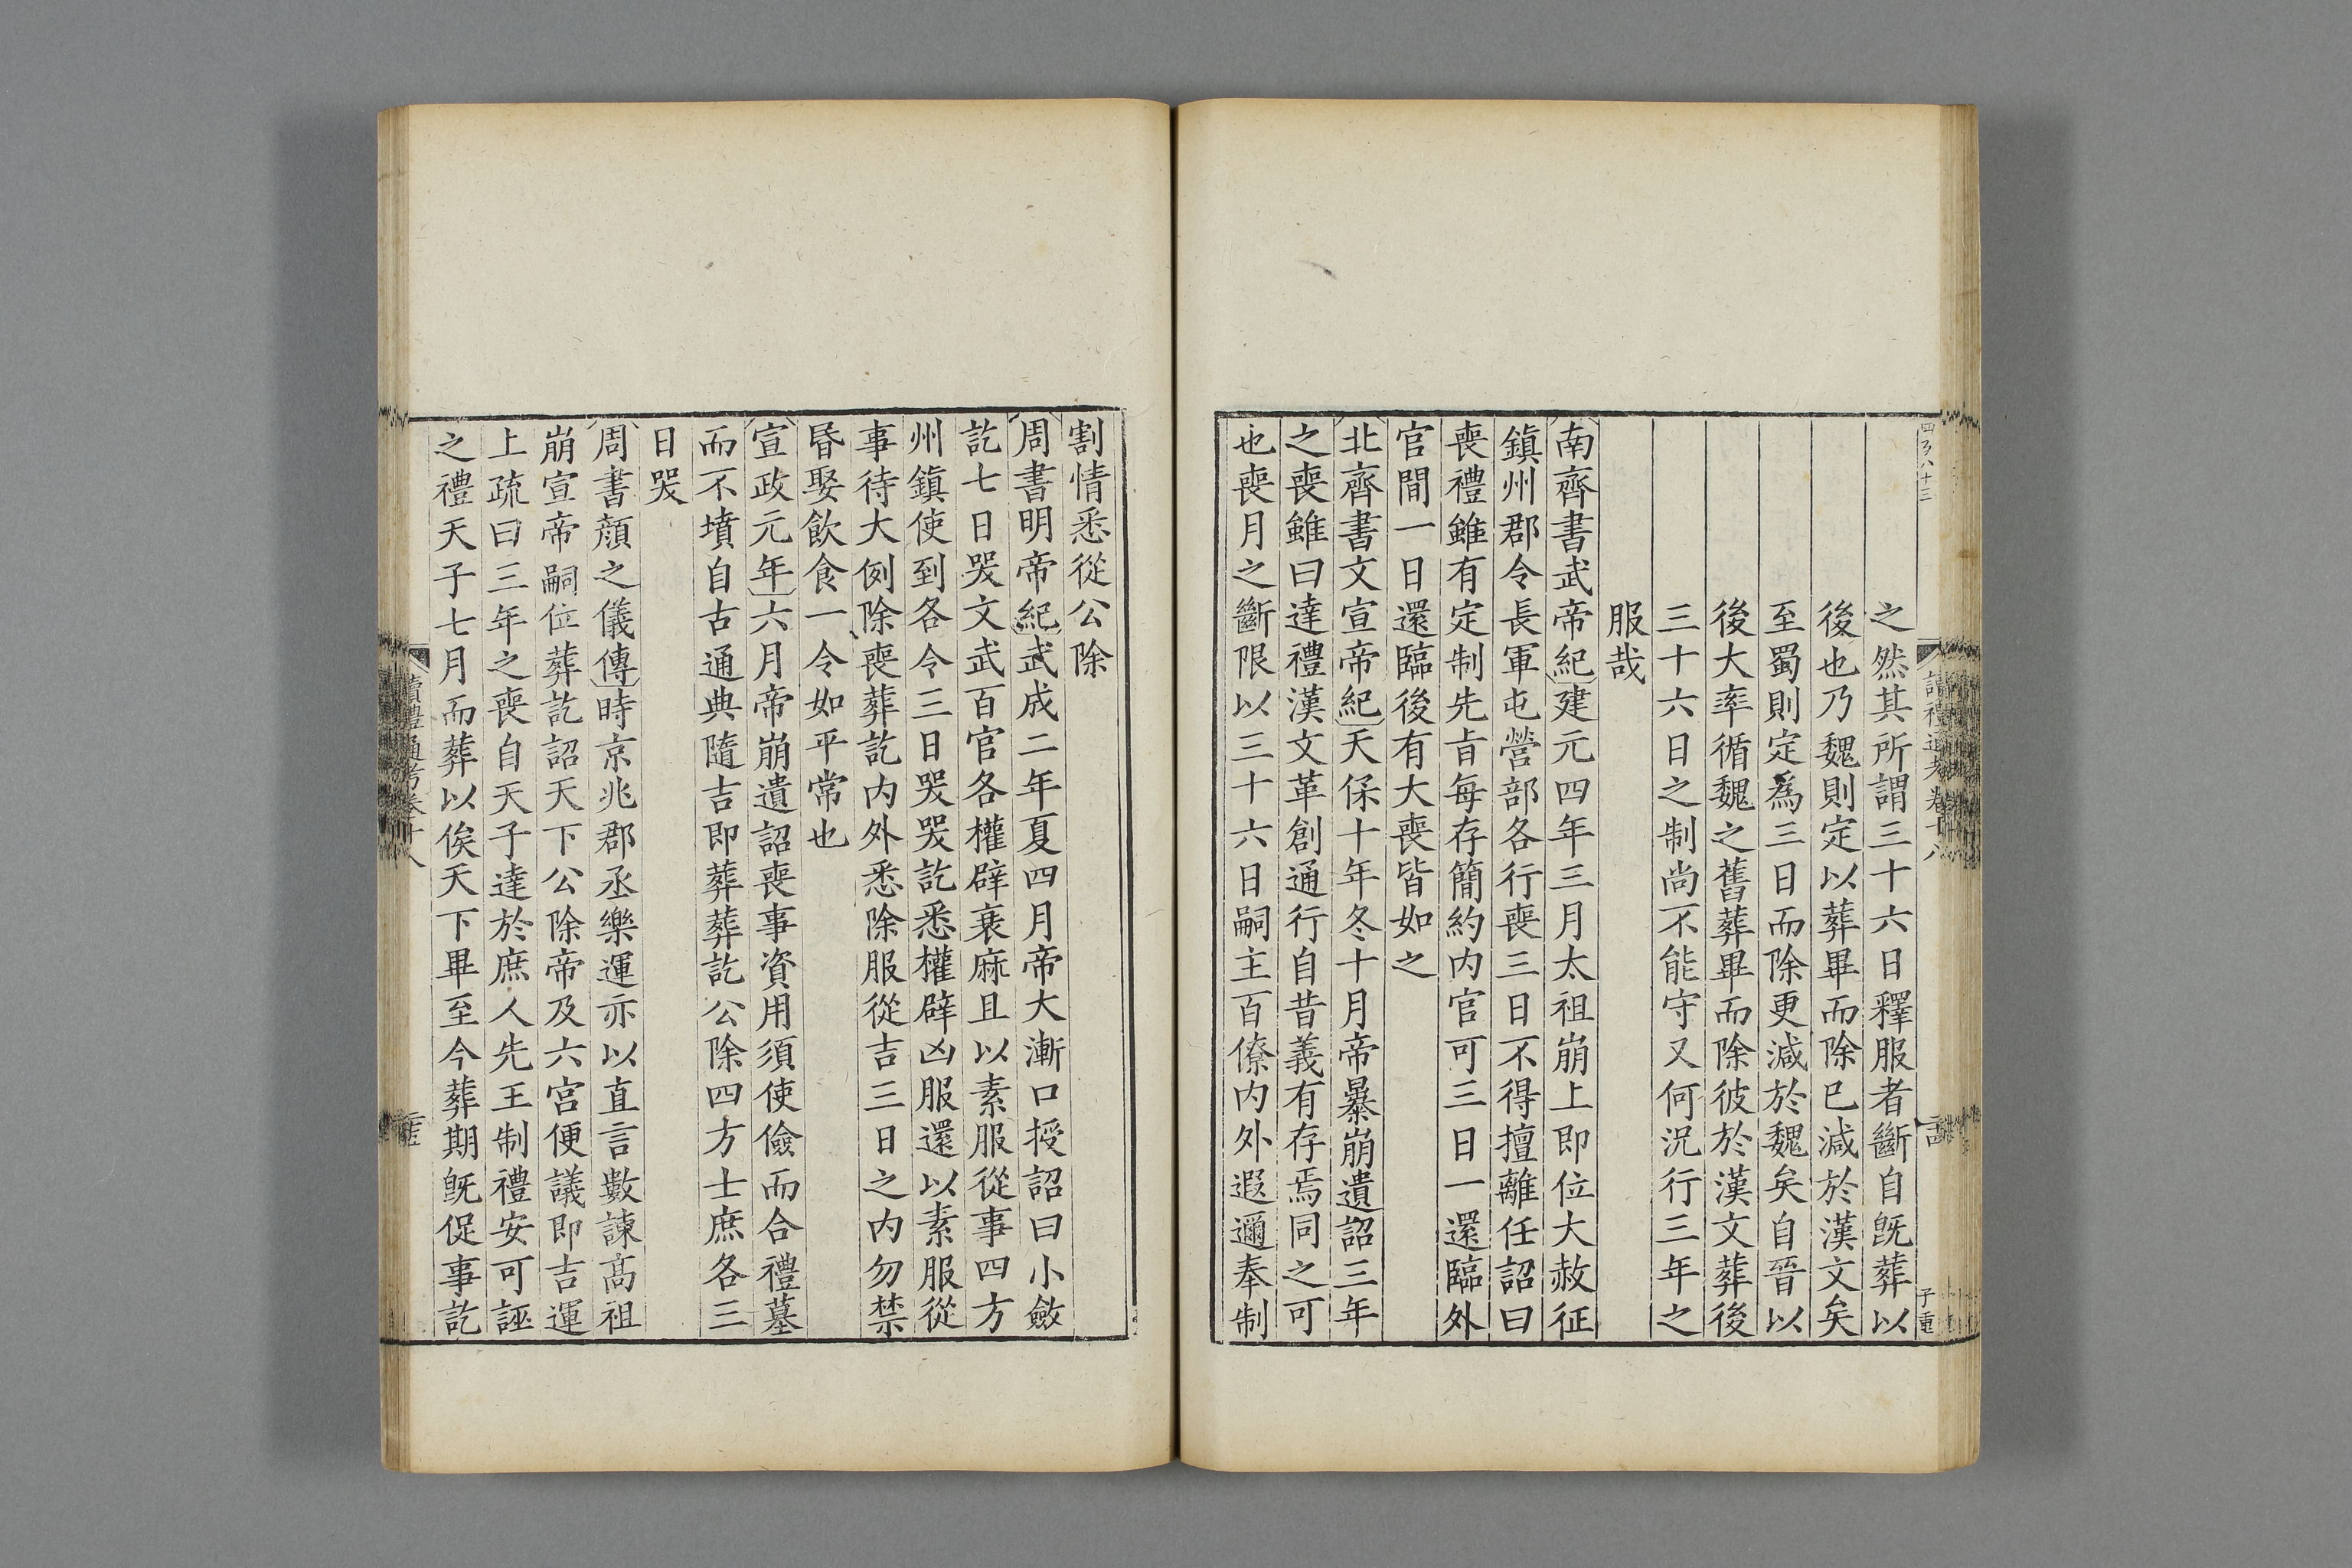 之然其所謂三十六日釋服者斷自旣葬以
後也乃魏則定以葬畢而除已減於漢文矣
至蜀則定爲三日而除更減於魏矣自晉以
後大率循魏之舊葬畢而除彼於漢文葬後
三十六日之制尚不能守又何況行三年之
服哉
南齊書武帝紀建元四年三月太祖崩上即位大赦征
鎮州郡令長軍屯營部各行喪三日不得擅離任詔曰
喪禮雖有定制先旨每存簡約内官可三日一還臨外
官間一日還臨後有大喪皆如之
北齊書文宣帝紀天保十年冬十月帝暴崩遺詔三年
之喪雖曰達禮漢文革創通行自昔義有存焉同之可
也喪月之斷限以三十六日嗣主百僚内外遐邇奉制
割情悉從公除
周書明帝紀武成二年夏四月帝大漸口授詔曰小斂
訖七日哭文武百官各權辟衰麻且以素服從事四方
州鎮使到各令三日哭哭訖悉權辟凶服還以素服從
事待大例除喪葬訖内外悉除服從吉三日之内勿禁
昏娶飲食一令如平常也
宣政元年六月帝崩遺詔喪事資用須使儉而合禮墓
而不墳自古通典隨吉即葬葬訖公除四方士庶各三
日哭
周書顔之儀傳時京兆郡丞樂運亦以直言數諫髙祖
崩宣帝嗣位葬訖詔天下公除帝及六宫便議即吉運
上疏曰三年之喪自天子達於庶人先王制禮安可誣
之禮天子七月而葬以俟天下畢至今葬期旣促事訖
讀禮通考卷十八